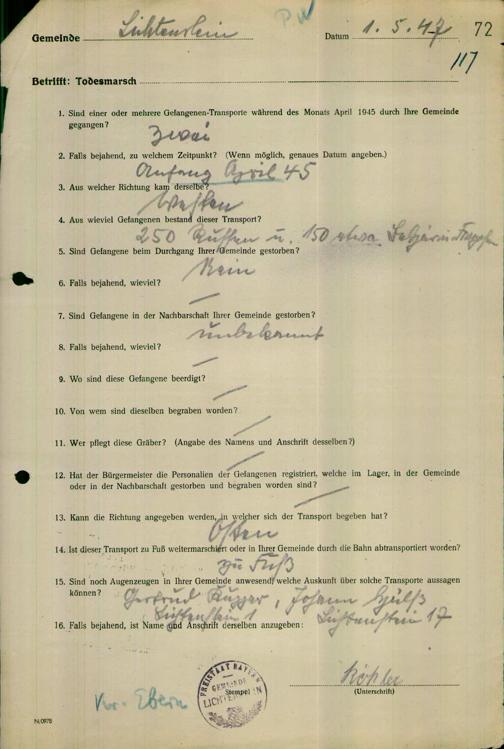 PW
Gemeinde Lichtenstein Datum 1. 5. 47 72
117
Betrifft: Todesmarsch
1. Sind einer oder mehrere Gefangenen-Transporte während des Monats April 1945 durch Ihre Gemeinde
gegangen?
zwei
2. Falls bejahend, zu welchem Zeitpunkt? (Wenn möglich, genaues Datum angeben.)
Anfang April 45
3. Aus welcher Richtung kam derselbe?
Westen
4. Aus wieviel Gefangenen bestand dieser Transport?
250 Russen u. 150 etwa
5. Sind Gefangene beim Durchgang Ihrer Gemeinde gestorben?
Nein
6. Falls bejahend, wieviel?
—
7. Sind Gefangene in der Nachbarschaft Ihrer Gemeinde gestorben?
unbekannt
8. Falls bejahend, wieviel?
—
9. Wo sind diese Gefangene beerdigt?
—
10. Von wem sind dieselben begraben worden?
—
11. Wer pflegt diese Gräber? (Angabe des Namens und Anschrift desselben?)
—
12. Hat der Bürgermeister die Personalien der Gefangenen registriert, welche im Lager, in der Gemeinde
oder in der Nachbarschaft gestorben und begraben worden sind?
—
13. Kann die Richtung angegeben werden, in welcher sich der Transport begeben hat?
Osten
14. Ist dieser Transport zu Fuß weitermarschiert oder in Ihrer Gemeinde durch die Bahn abtransportiert worden?
zu Fuß
15. Sind noch Augenzeugen in Ihrer Gemeinde anwesend, welche Auskunft über solche Transporte aussagen
können? Gertrud , Johann
Lichtenstein 1 Lichtenstein 17
16. Falls bejahend, ist Name und Anschrift derselben anzugeben:
Köhler
(Unterschrift)
FREISTAAT BAYERN
GEMEINDE
LICHTENSTEIN
Stempel
Kr. Ebern
N/0978